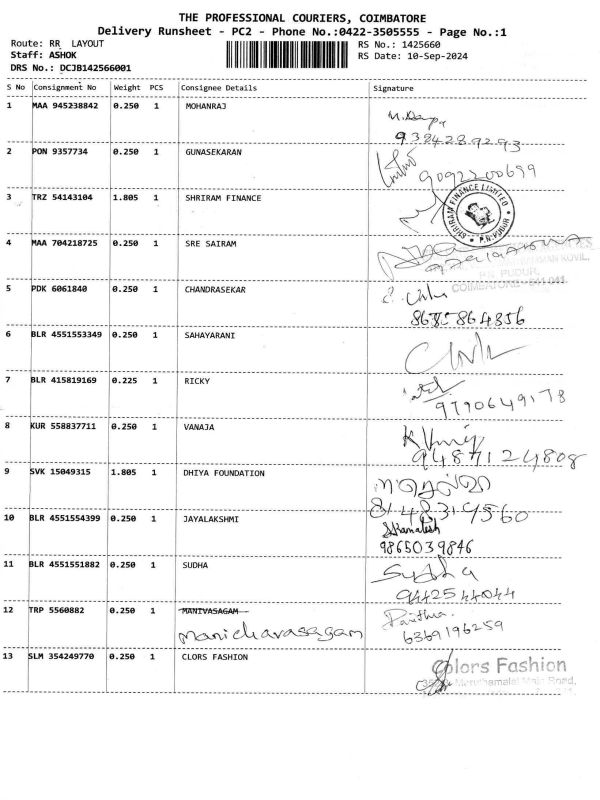 THE PROFESSIONAL COURIERS, COIMBATORE
Delivery Runsheet - PC2 - Phone No.:0422-3505555 - Page No.:1
Route: RR LAYOUT
RS No.: 1425660
Staff: ASHOK
RS Date: 10-Sep-2024
DRS No.: DCJB142566001
S No Consignment No Weight PCS Consignee Details Signature
1 MAA 945238842 0.250 1 MOHANRAJ
9384289293
2 PON 9357734 0.250 1 GUNASEKARAN
9092200699
3 TRZ 54143104 1.805 1 SHRIRAM FINANCE
SHRIRAM FINANCE LIMITED
P.N. PUDUR
4 MAA 704218725 0.250 1 SRE SAIRAM
P.N. PUDUR,
COIMBATORE - 641 041
5 PDK 6061840 0.250 1 CHANDRASEKAR
6 BLR 4551553349 0.250 1 SAHAYARANI
7 BLR 415819169 0.225 1 RICKY
9790649178
8 KUR 558837711 0.250 1 VANAJA
9487124808
9 SVK 15049315 1.805 1 DHIYA FOUNDATION
8148319560
10 BLR 4551554399 0.250 1 JAYALAKSHMI
S.Kamalesh
9865039846
11 BLR 4551551882 0.250 1 SUDHA
Sudha
9442544044
12 TRP 5560882 0.250 1 MANIVASAGAM
manichavasagam
6369196259
13 SLM 354249770 0.250 1 CLORS FASHION
Colors Fashion
Maruthamalai Main Road,